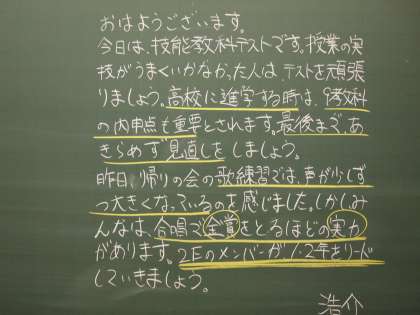 おはようございます。
今日は、技能教科テストです。授業の実
技がうまくいかなかった人は、テストを頑張
りましょう。高校に進学する時は、9教科
の内申点も重要とされます。最後まで、あ
きらめず見直しをしましょう。
昨日、帰りの会の歌練習では、声が少しず
つ大きくなっているのを感じました。しかしみ
んなは、合唱で金賞をとるほどの実力
があります。2Eのメンバーが1、2年をリード
していきましょう。
浩介